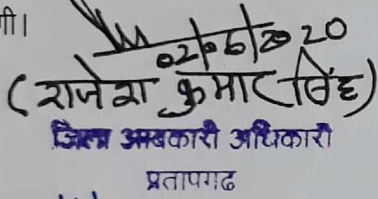 गी।
02/06/2020
(राजेश कुमार सिंह)
जिला आबकारी अधिकारी
प्रतापगढ